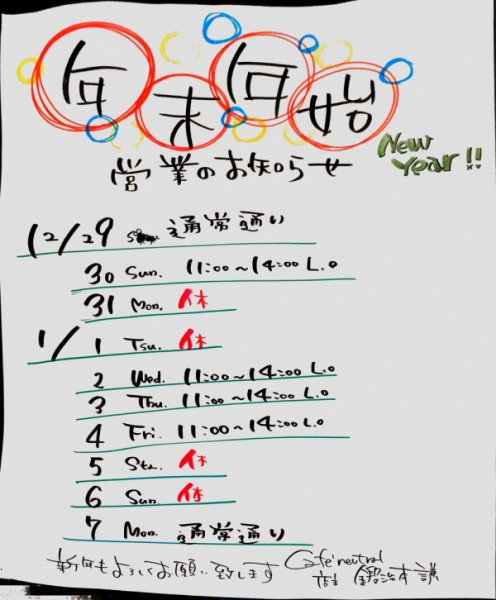 年末年始
営業のお知らせ
New Year!!
12/29 通常通り
30 Sun. 11:00~14:00 L.o
31 Mon. 休
1/1 Tsu. 休
2 Wed. 11:00~14:00 L.o
3 Thu. 11:00~14:00 L.o
4 Fri. 11:00~14:00 L.o
5 Sta. 休
6 Sun. 休
7 Mon. 通常通り
新年もよろしくお願い致します Cafe' neutral